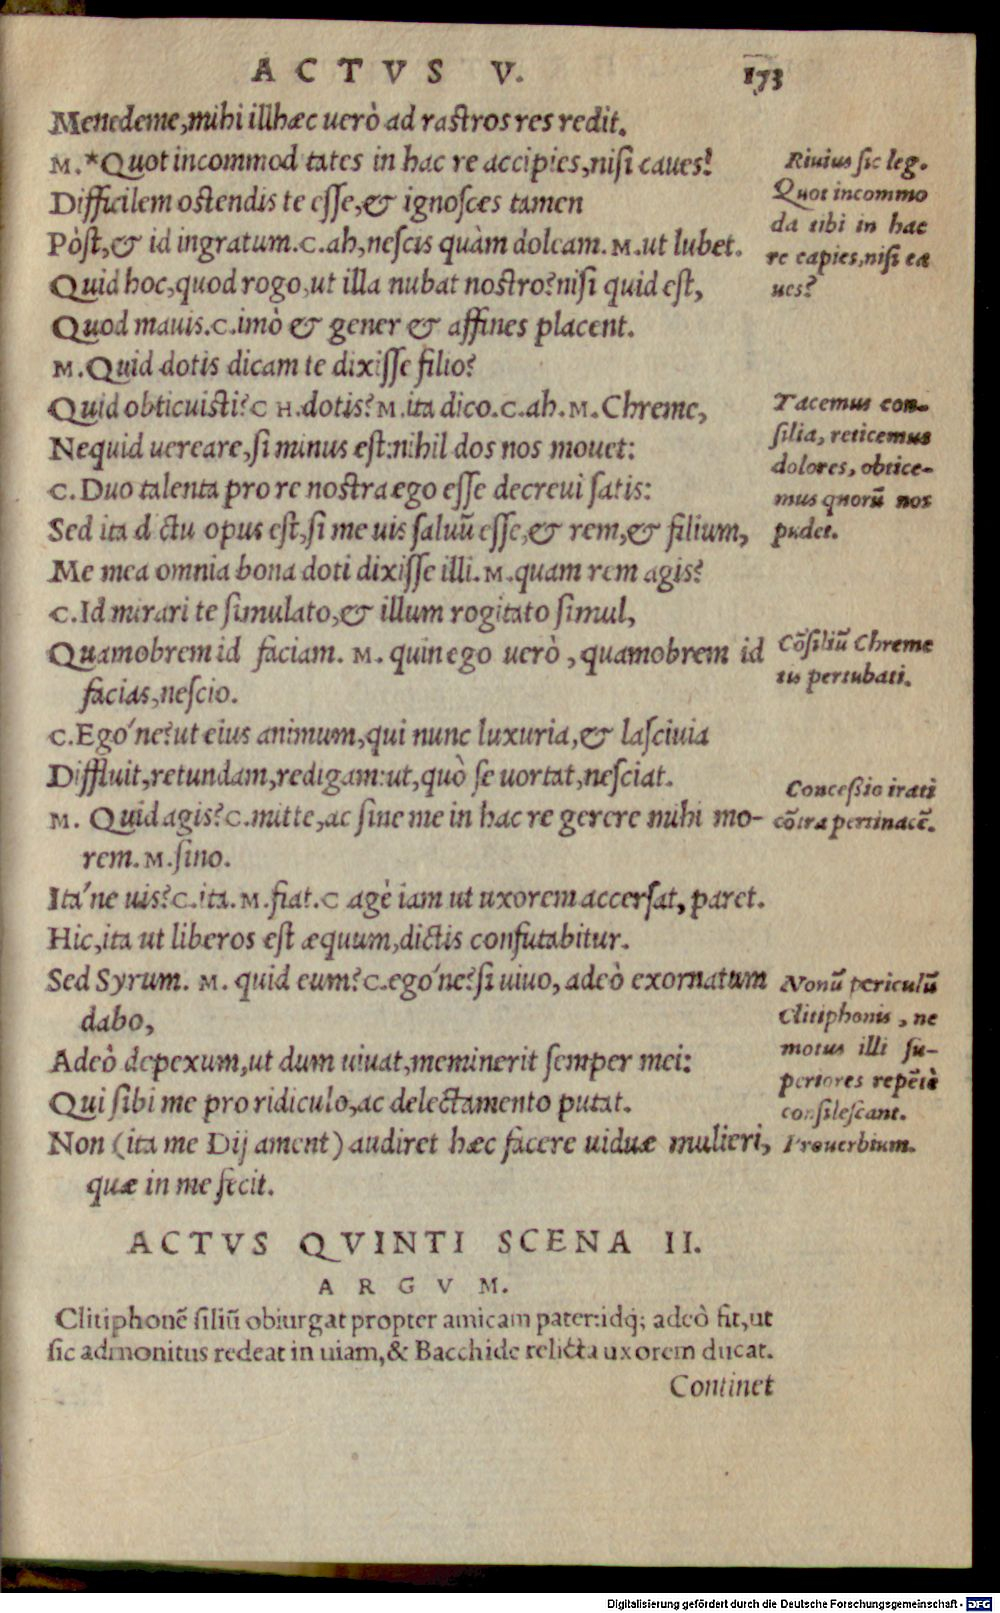 ACTVS V.
173
Menedeme,mihi illhæc uerò ad rastros res redit.
M.*Quot incommod tates in hac re accipies,nisi caues?
Difficilem ostendis te esse,& ignosces tamen
Pòst,& id ingratum.C.ah,nescis quàm doleam.M.ut lubet.
Quid hoc,quod rogo,ut illa nubat nostro?nisi quid est,
Quod mauis.C.imò & gener & affines placent.
M.Quid dotis dicam te dixisse filio?
Quid obticuisti?C H.dotis?M.ita dico.C.ah.M.Chreme,
Nequid uereare,si minus est:nihil dos nos mouet:
C.Duo talenta pro re nostra ego esse decreui satis:
Sed ita d ctu opus est,si me uis saluũ esse,& rem,& filium,
Me mea omnia bona doti dixisse illi.M.quam rem agis?
C.Id mirari te simulato,& illum rogitato simul,
Quamobrem id faciam. M. quin ego uerò ,quamobrem id
facias,nescio.
C.Ego´ne?ut eius animum,qui nunc luxuria,& lasciuia
Diffluit,retundam,redigam:ut,quò se uortat,nesciat.
M. Quid agis?C.mitte,ac sine me in hac re gerere mihi mo-
rem.M.sino.
Ita´ne uis?C.ita.M.fiat.C agè iam ut uxorem accersat, paret.
Hic,ita ut liberos est æquum,dictis confutabitur.
Sed Syrum. M. quid eum?C.ego´ne?si uiuo, adeò exornatum
dabo,
Adeò depexum,ut dum uiuat,meminerit semper mei:
Qui sibi me pro ridiculo,ac delectamento putat.
Non (ita me Dij ament) audiret hæc facere uiduæ mulieri,
quæ in me fecit.
Riuius sic leg.
Quot incommo
da tibi in hac
re capies,nisi ca
ues?
Tacemus con-
silia, reticemus
dolores, obtice-
mus quorũ nos
pudet.
Cõsiliũ Chreme
tis pertubati.
Concessio irati
cõtra pertinacẽ.
Nonũ periculũ
Clitiphonis , ne
motus illi su-
periores repẽtè
consilescant.
Prouerbium.
ACTVS QVINTI SCENA II.
ARGVM.
Clitiphonẽ filiũ obiurgat propter amicam pater:idq; adeò fit,ut
sic admonitus redeat in uiam,& Bacchide relicta uxorem ducat.
Continet
Digitalisierung gefördert durch die Deutsche Forschungsgemeinschaft - DFG